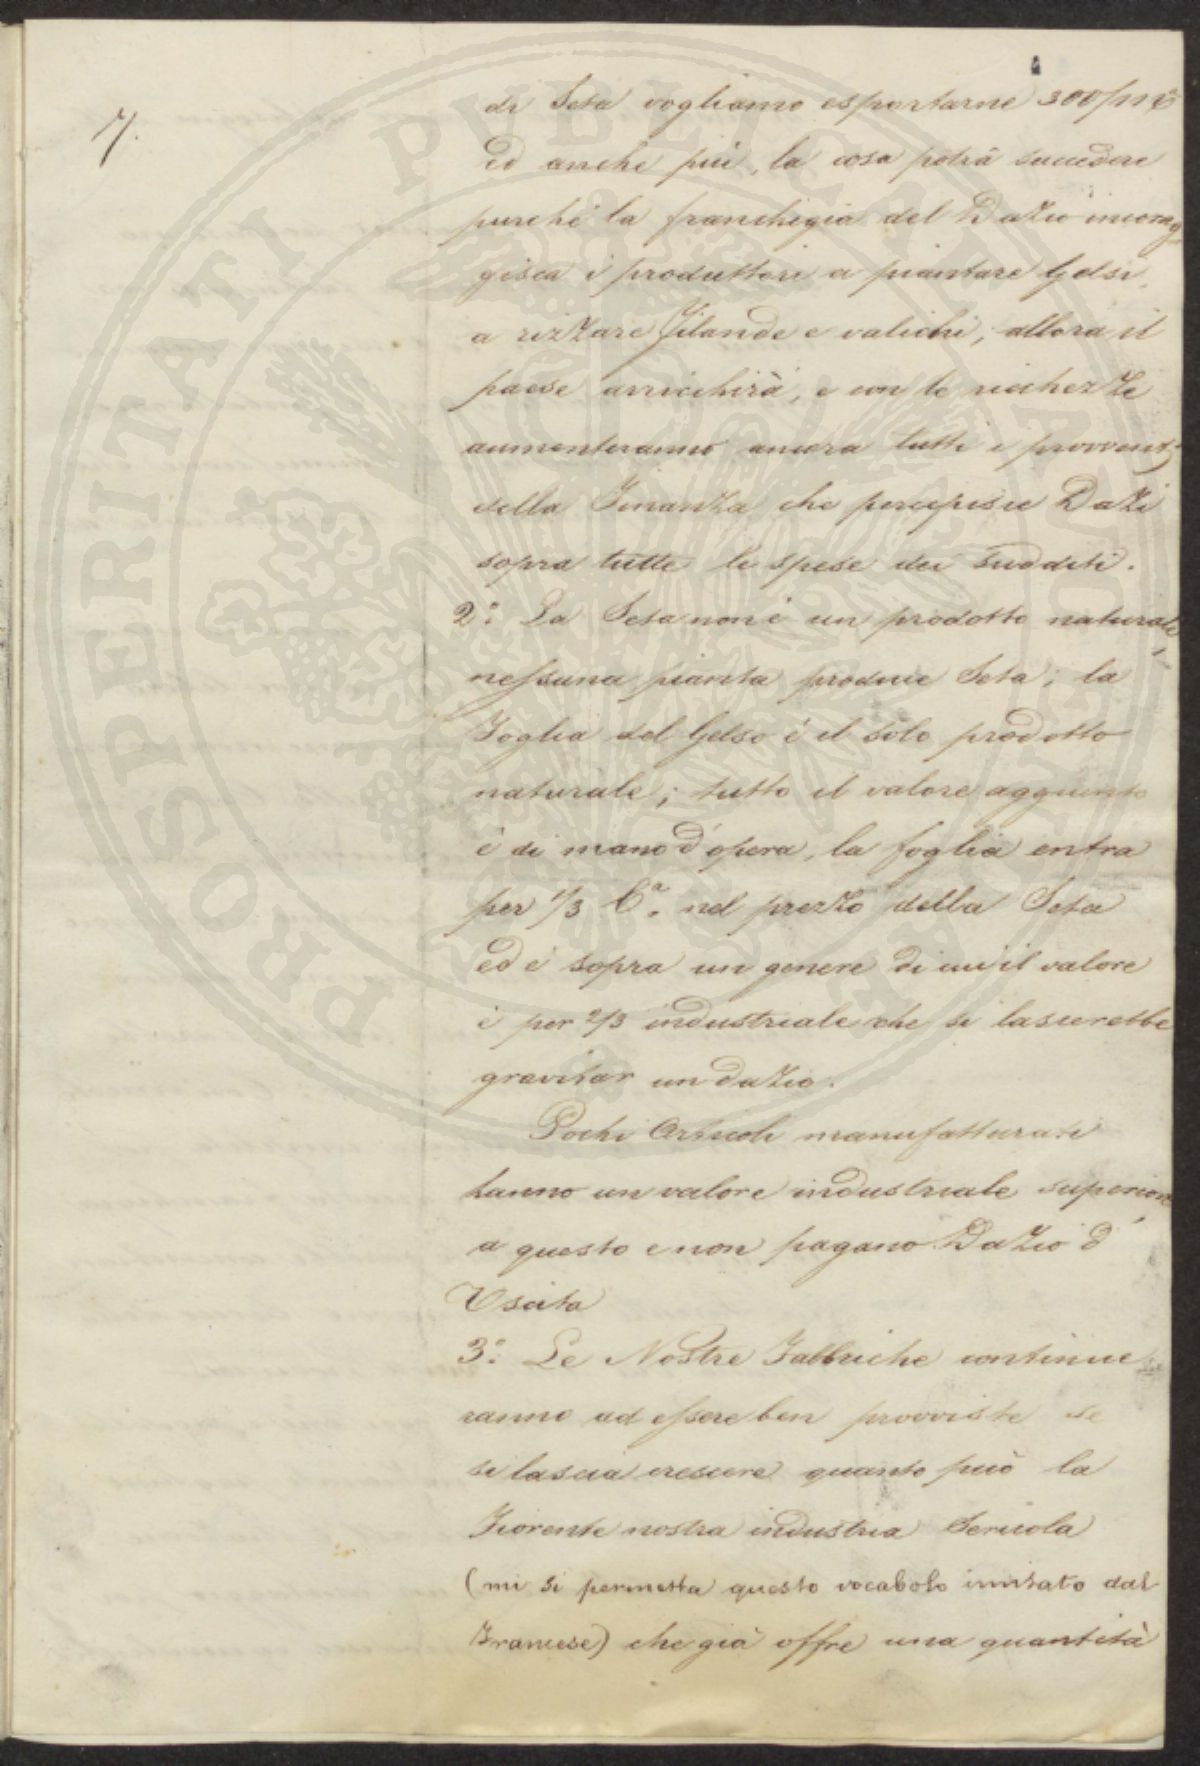 7.
di Seta vogliamo esportarne 300/m
ed anche più, la cosa potrà succedere
purchè la franchigia del Dazio incorag
gisca i produttori a piantare Gelsi,
a rizzare Filande e valichi; allora il
paese arricchirà, e con le ricchezze
aumenteranno ancora tutti i proventi
della Finanza che percepisce Dazi
sopra tutte le spese dei sudditi.
2°: La Seta non è un prodotto naturale,
nessuna pianta produce Seta; la
Foglia del Gelso è il solo prodotto
naturale; tutto il valore aggiunto
è di mano d'opera, la foglia entra
per 1/3 Ca. nel prezzo della Seta
ed è sopra un genere di cui il valore
è per 2/3 industriale che si lascerebbe
gravitar un dazio.
Pochi Articoli manufatturati
hanno un valore industriale superiore
a questo e non pagano Dazio d'
Uscita
3°: Le Nostre Fabbriche continue
ranno ad essere ben provviste se
si lascia crescere quanto può la
Fiorente nostra industria Sericola
(mi si permetta questo vocabolo imitato dal
Francese) che già offre una quantità
PROSPERITATI PUBLICAE